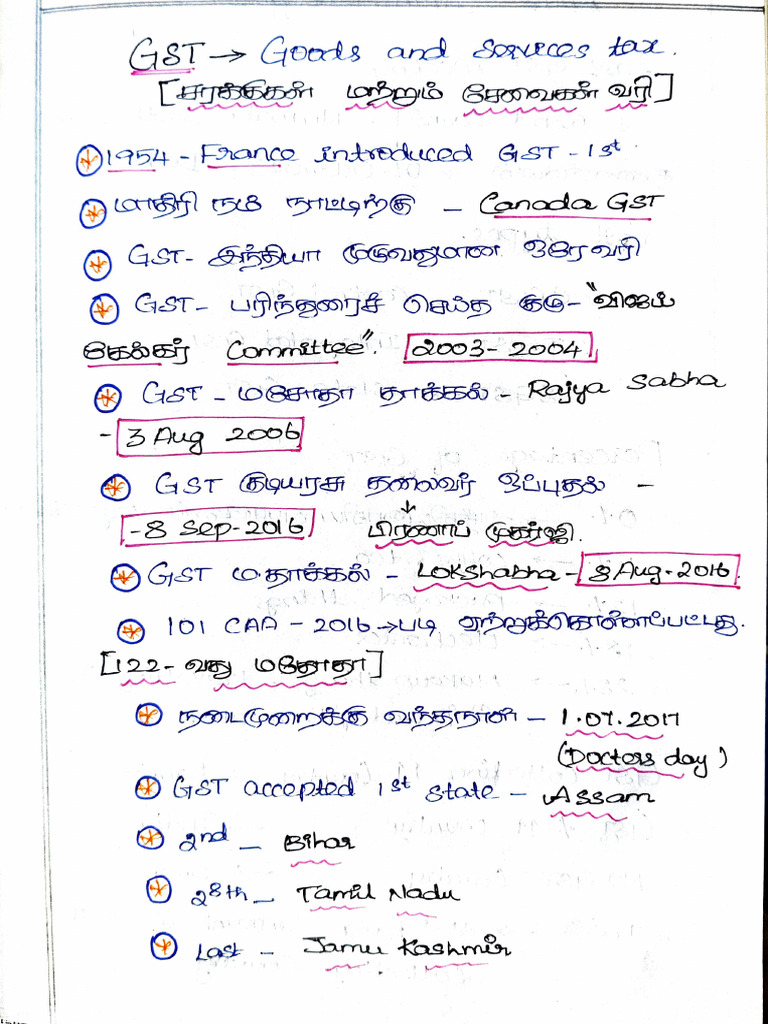 GST → Goods and Services tax.
[சரக்குகள் மற்றும் சேவைகள் வரி]
1954 - France introduced GST - 1st
மாதிரி நம் நாட்டிற்கு - Canada GST
GST - இந்தியா முழுவதுமான ஒரே வரி
GST - பரிந்துரைச் செய்த குழு - "விஜய்
கேல்கர் Committee". 2003-2004
GST - மசோதா தாக்கல் - Rajya Sabha
- 3 Aug 2006
GST குடியரசு தலைவர் ஒப்புதல் -
- 8 Sep-2016 பிரணாப் முகர்ஜி.
GST ம.தாக்கல் - LOKShabha - 8 Aug-2016.
101 CAA - 2016 → படி ஏற்றுக்கொள்ளப்பட்டது.
[122-வது மதோதா]
நடைமுறைக்கு வந்தநாள் - 1.07.2017
(Docters day)
GST accepted 1st state - Assam
2nd - Bihar
28th - Tamil Nadu
Last - Jamu Kashmir